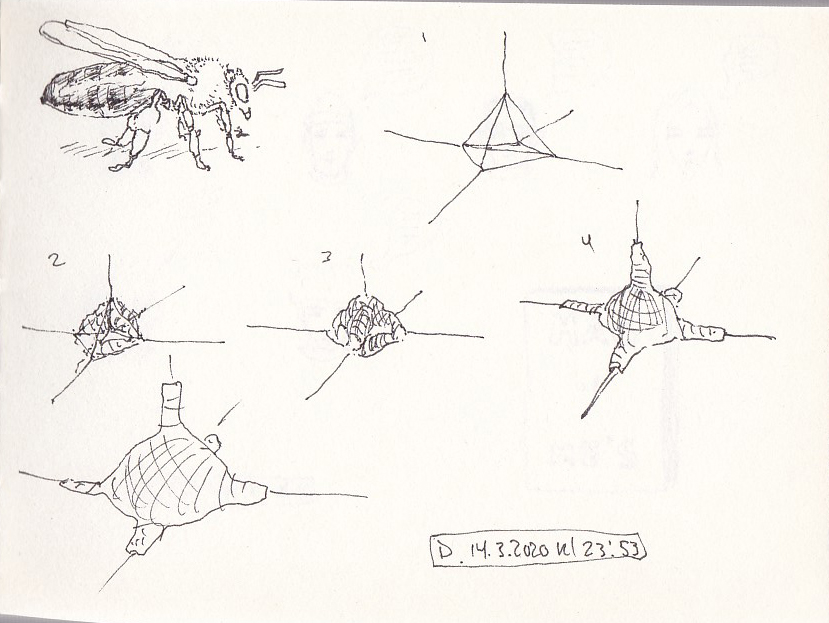 1
2
3
4
D. 14.3.2020 kl 23:53